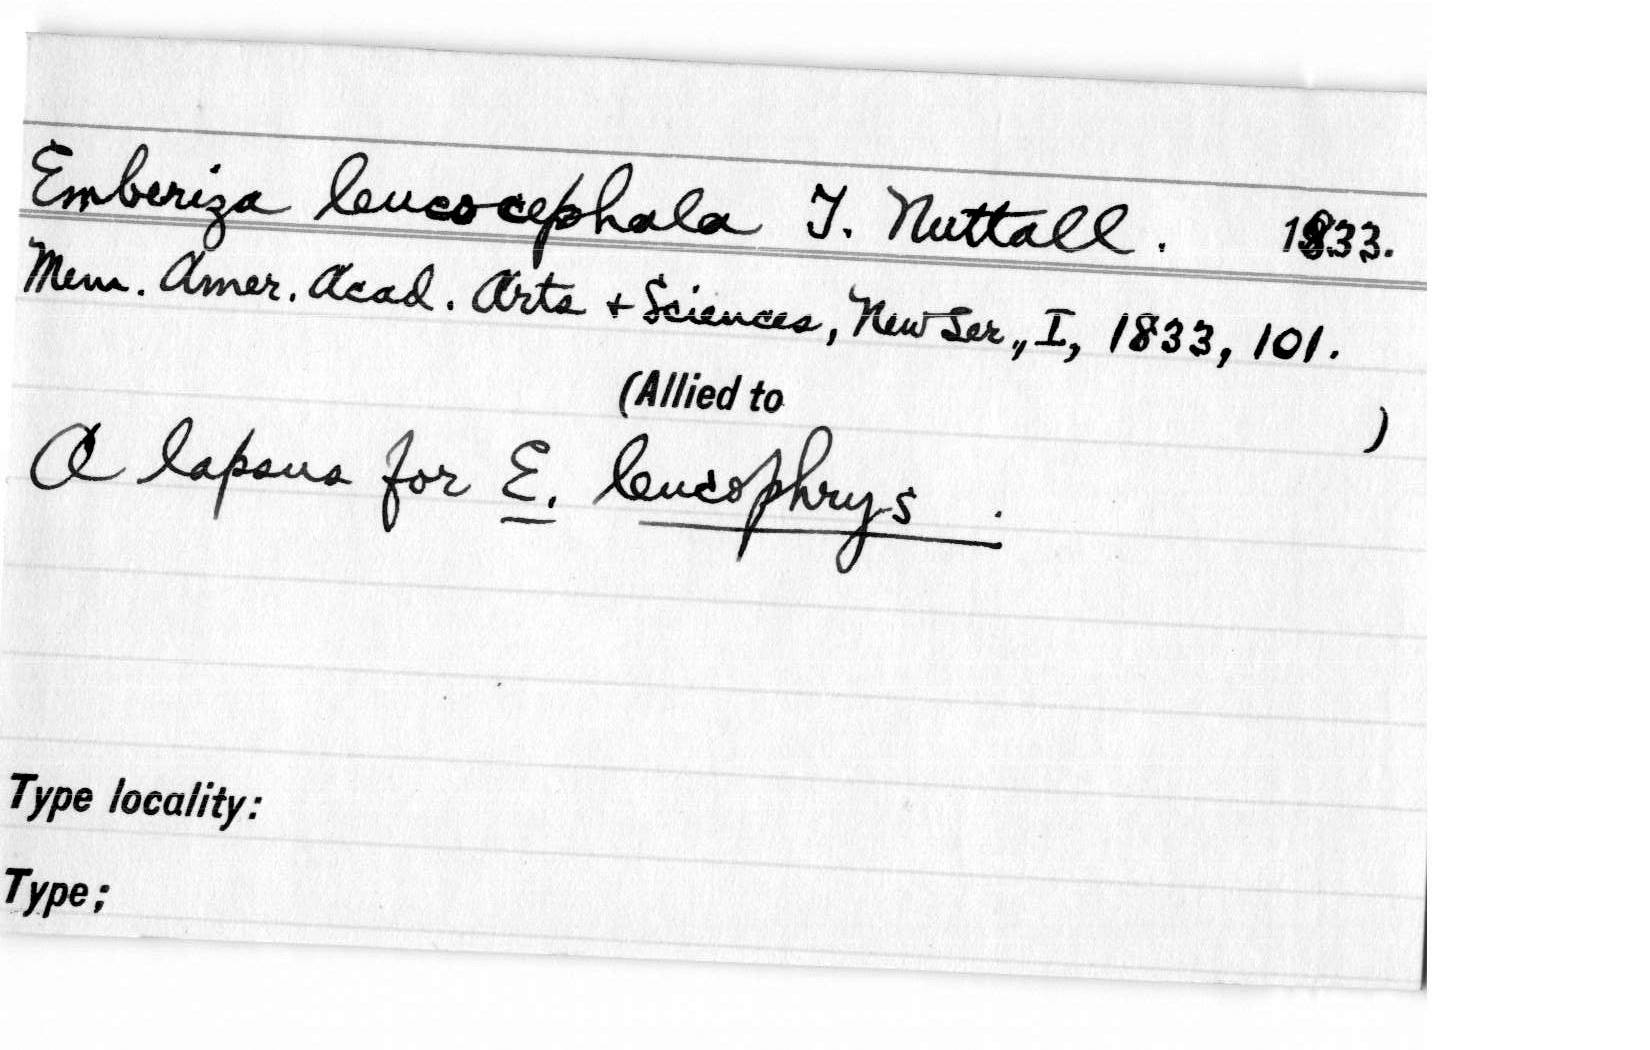 Emberiza leucocephala T. Nuttall. 1833.
Mem. Amer. Acad. Arts + Sciences, New Ser., I, 1833, 101.
(Allied to )
A lapsus for E. leucophrys.
Type locality:
Type;